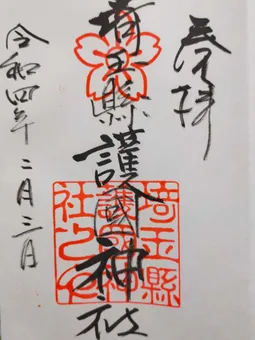 奉拝
埼玉縣護国神社
令和四年二月三日
埼玉縣
護國神
社之印